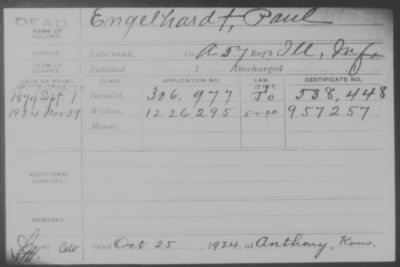 DEAD
Engelhardt, Paul
NAME OF
SOLDIER:
SERVICE:
Late rank, Co. A 57 Reg't Ill. Inf.
TERM OF
SERVICE:
Enlisted , 1 Discharged
DATE OF FILING. CLASS. APPLICATION NO. LAW. CERTIFICATE NO.
1879 Sept. 1 Invalid, 306,977 538,448
1924 Nov 29 Widow, 1226295 957257
Minor,
ADDITIONAL
SERVICES:
REMARKS:
Died Oct 25, 1924, at Anthony, Kans.